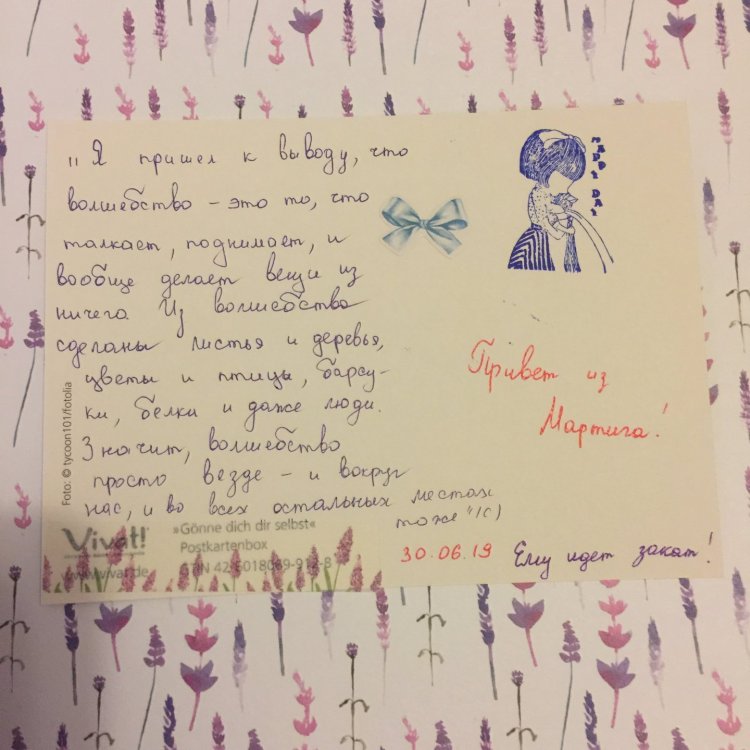 „Я пришел к выводу, что
волшебство - это то, что
толкает, поднимает, и
вообще делает вещи из
ничего. Из волшебства
сделаны листья и деревья,
цветы и птицы, барсу-
ки, белки и даже люди.
Значит, волшебство
просто везде - и вокруг
нас, и во всех остальных местах
тоже" (с)
HAPPY DAY
Привет из
Мартига!
30.06.19
Ему идет закат!
Foto: © tycoon101/fotolia
Vivat!
»Gönne dich dir selbst«
Postkartenbox
www.vivat.de